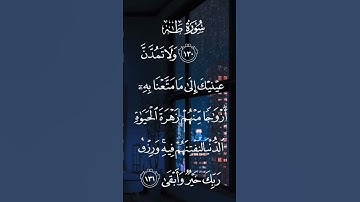 سُورَةُ طه
﴿١٣٠﴾ وَلَا تَمُدَّنَّ
عَيْنَيْكَ إِلَىٰ مَا مَتَّعْنَا بِهِۦٓ
أَزْوَٰجًا مِّنْهُمْ زَهْرَةَ ٱلْحَيَوٰةِ
ٱلدُّنْيَا لِنَفْتِنَهُمْ فِيهِ ۚ وَرِزْقُ
رَبِّكَ خَيْرٌ وَأَبْقَىٰ ﴿١٣١﴾